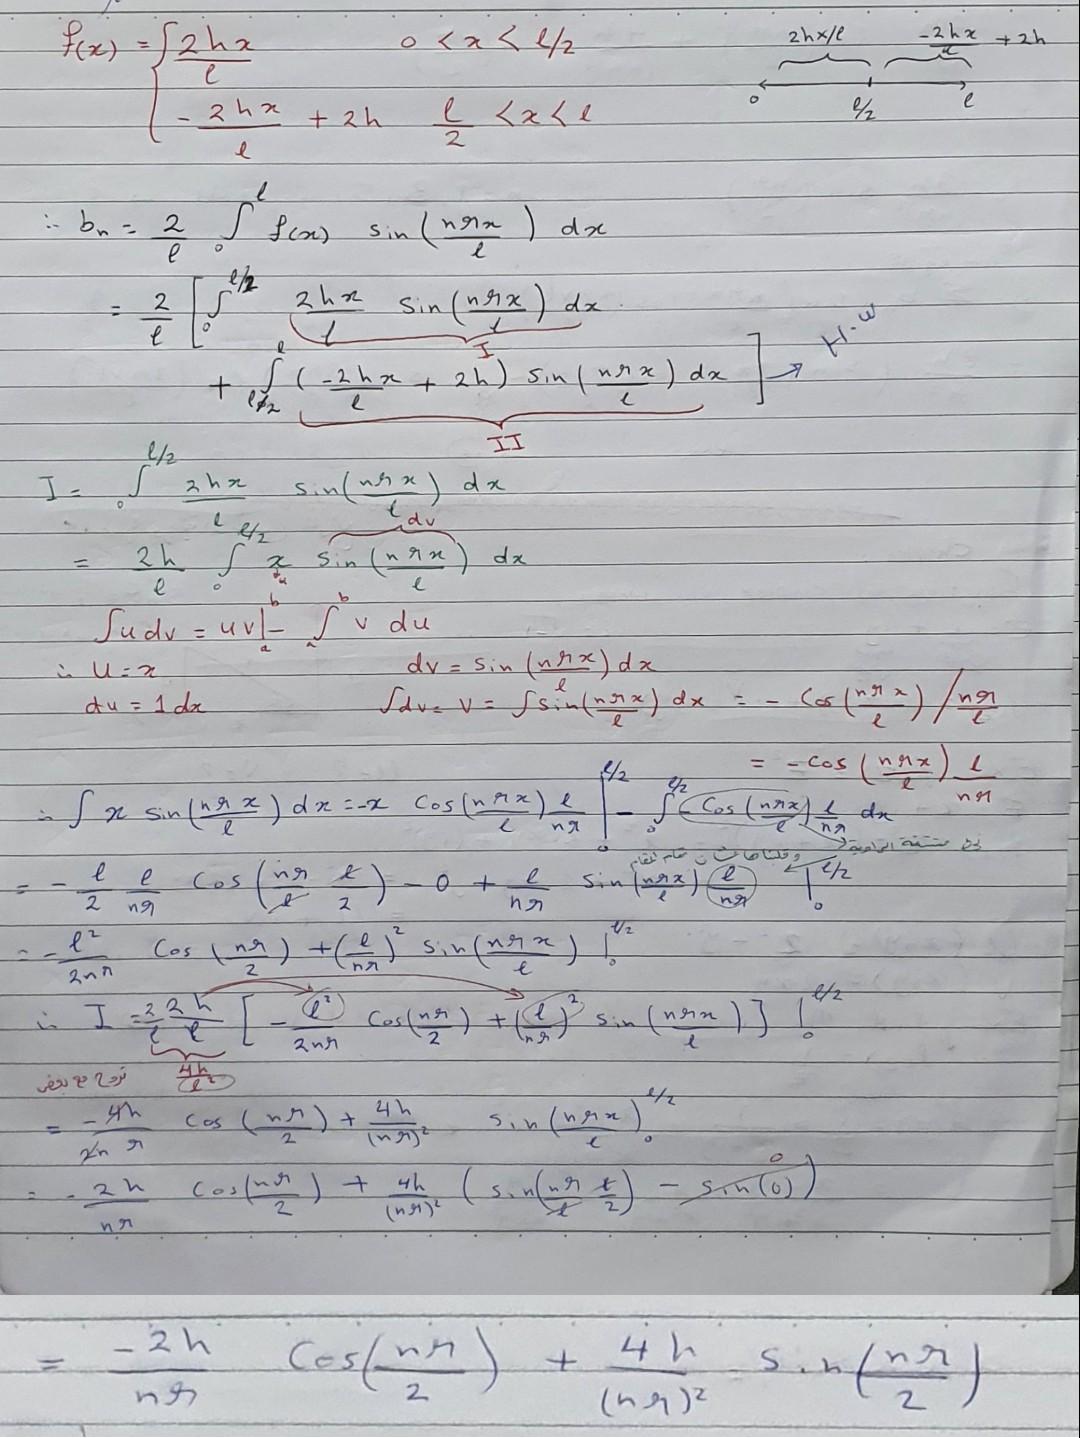 f(x) = { 2hx/l    0 < x < l/2        2hx/l    -2hx/l + 2h
- 2hx/l + 2h    l/2 < x < l        0    l/2    l
∴ bn = 2/l ∫₀^l f(x) sin(nπx/l) dx
= 2/l [ ∫₀^{l/2} 2hx/l sin(nπx/l) dx
I
+ ∫_{l/2}^l (-2hx/l + 2h) sin(nπx/l) dx ] → H.w
II
I = ∫₀^{l/2} 2hx/l sin(nπx/l) dx
dv
= 2h/l ∫₀^{l/2} x sin(nπx/l) dx
u
∫u dv = uv|ₐ^b - ∫ₐ^b v du
∴ u = x    dv = sin(nπx/l) dx
du = 1 dx    ∫dv = v = ∫sin(nπx/l) dx = - cos(nπx/l) / nπ/l
= - cos(nπx/l) l/nπ
∴ ∫ x sin(nπx/l) dx = -x cos(nπx/l) l/nπ |₀^{l/2} - ∫₀^{l/2} - cos(nπx/l) l/nπ dx
مشتقة الزاوية
= - l/2 l/nπ cos(nπ/l l/2) - 0 + l/nπ sin(nπx/l) (l/nπ) |₀^{l/2}
= - l²/2nπ cos(nπ/2) + (l/nπ)² sin(nπx/l) |₀^{l/2}
∴ I = 2/l 2h/l [ - l²/2nπ cos(nπ/2) + (l/nπ)² sin(nπx/l) ] |₀^{l/2}
4h/l²
= -4h/2nπ cos(nπ/2) + 4h/(nπ)² sin(nπx/l)₀^{l/2}
= - 2h/nπ cos(nπ/2) + 4h/(nπ)² ( sin(nπ/l l/2) - sin(0) ) 0
= -2h/nπ cos(nπ/2) + 4h/(nπ)² sin(nπ/2)